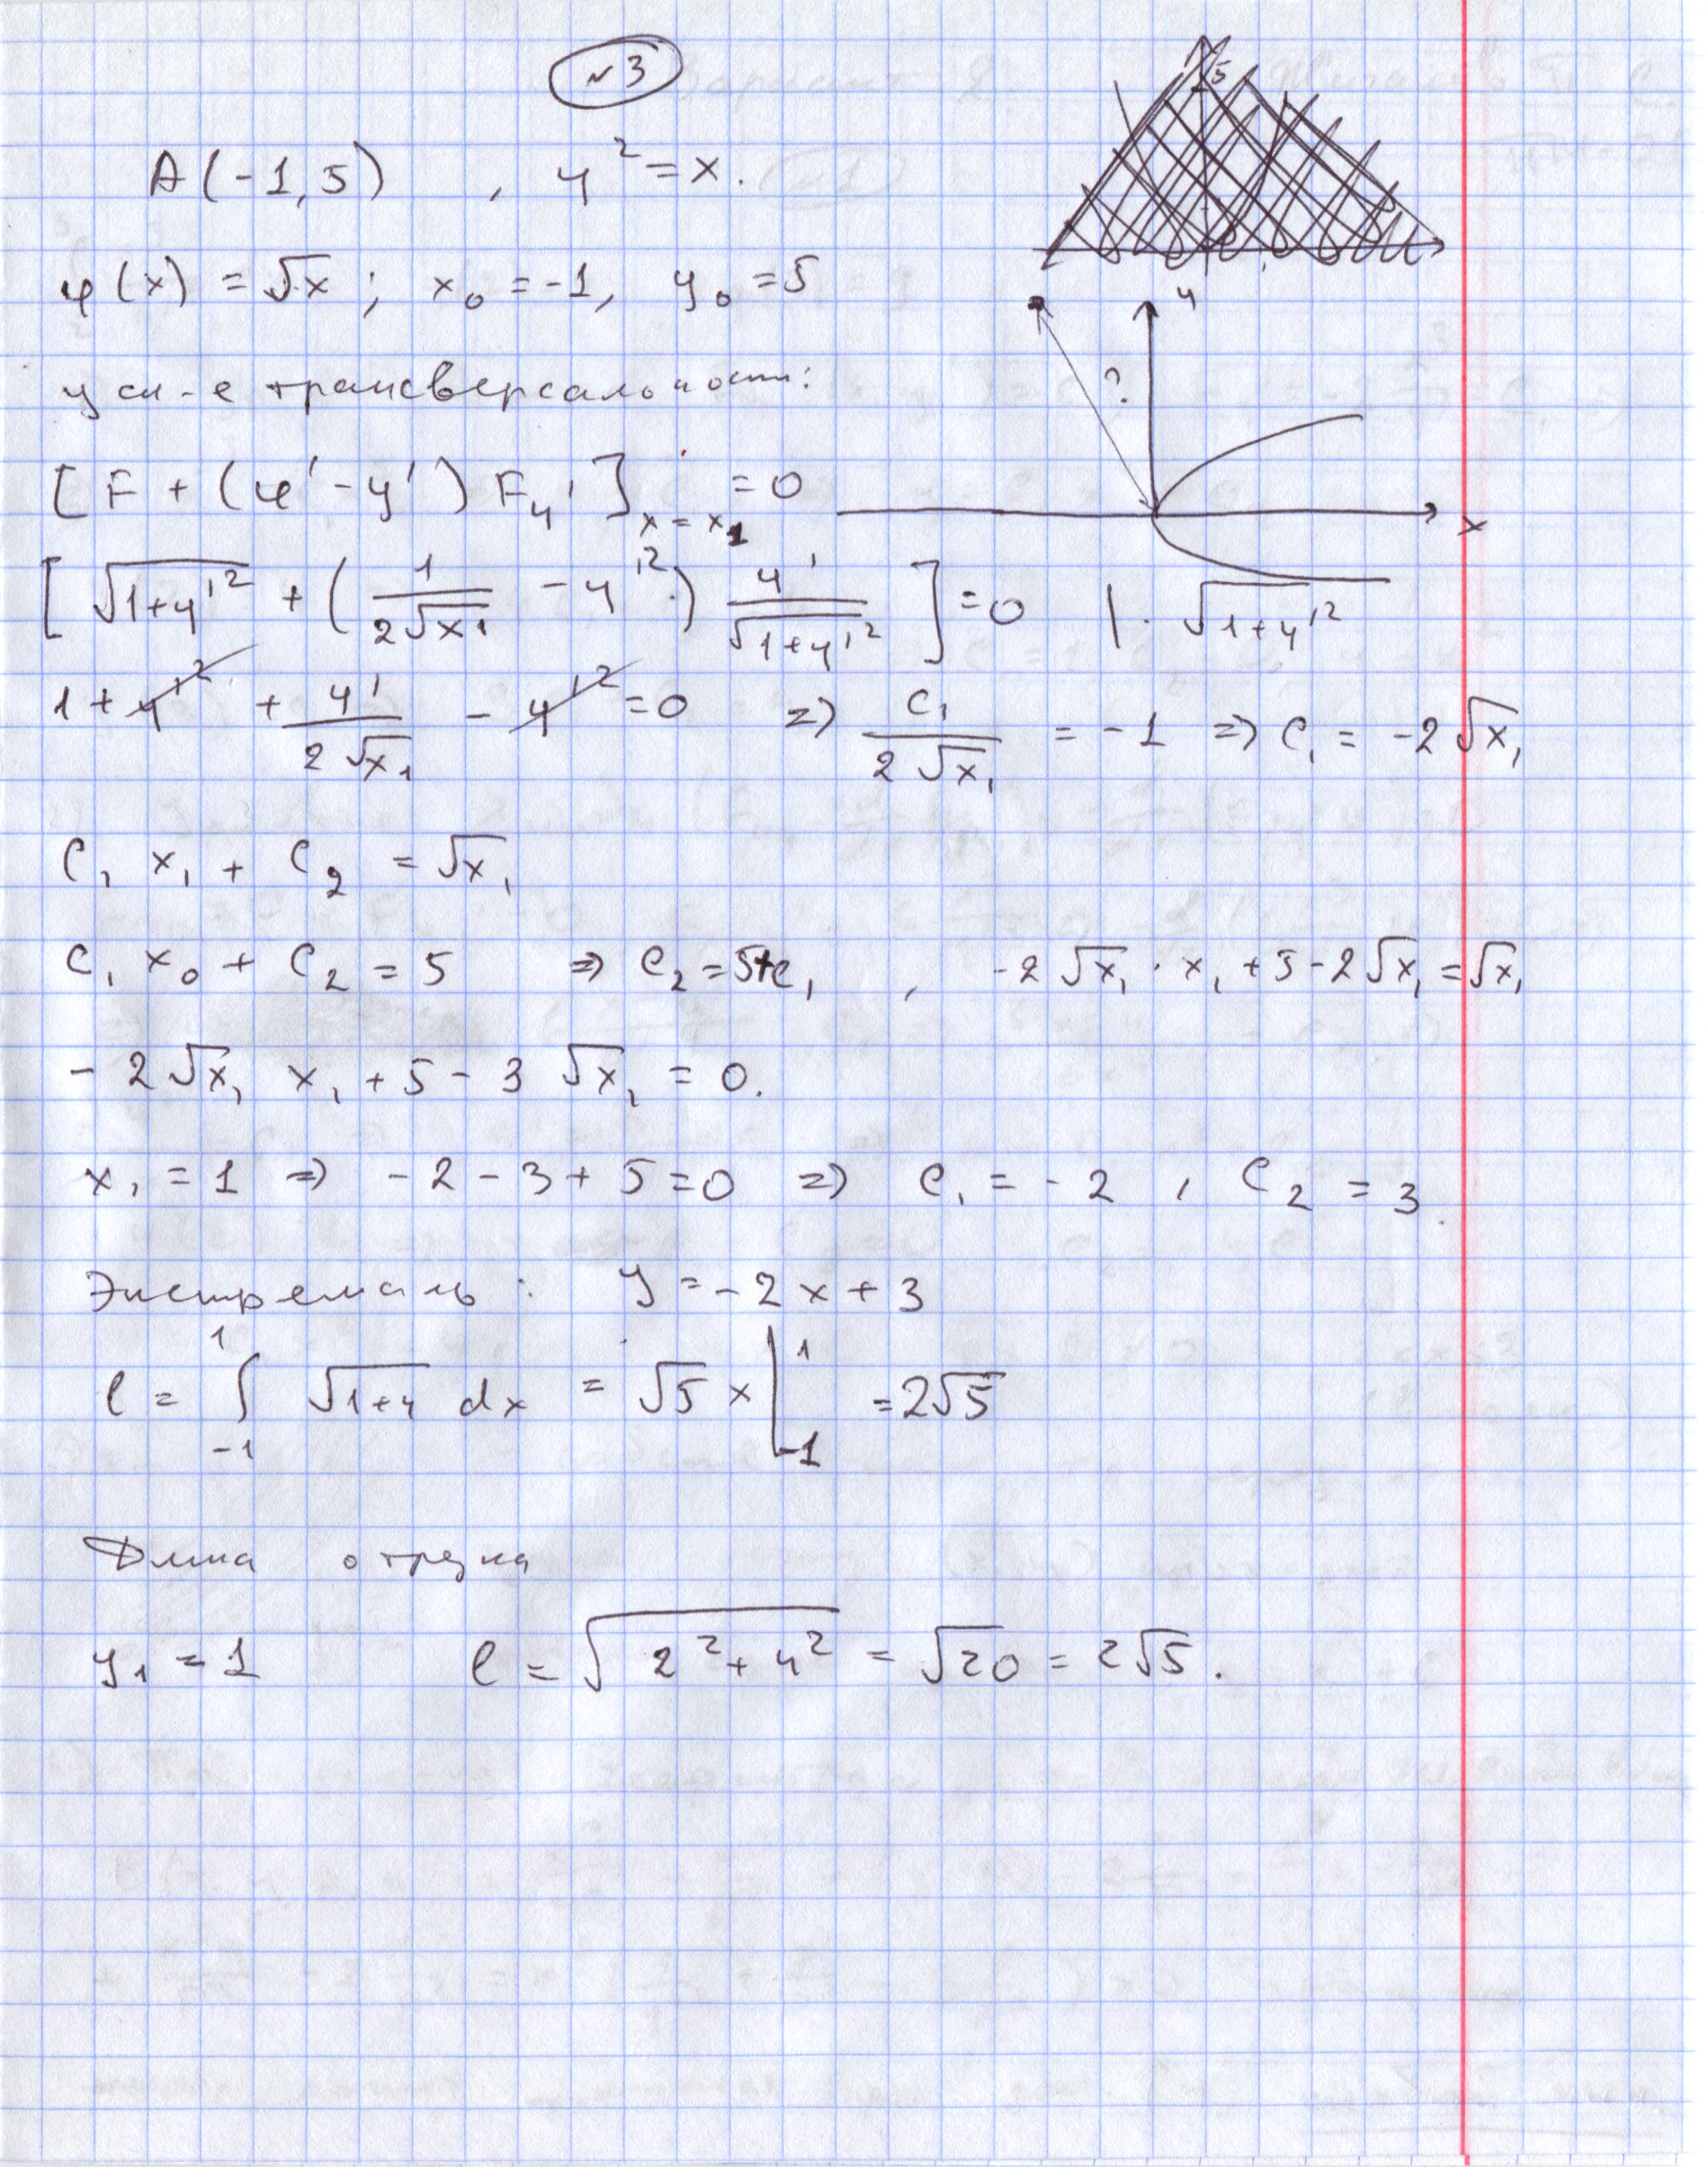 №3
5
A(-1,5) , y² = x.
φ(x) = √x ; x₀ = -1, y₀ = 5
y
усл-е трансверсальности:
?
[F + (φ' - y') F_y']_{x = x₁} = 0
x
[√(1+y'²) + (1/(2√x₁) - y'²) y'/√(1+y'²)] = 0 | · √(1+y'²)
1 + y'² + y'/(2√x₁) - y'² = 0 => C₁/(2√x₁) = -1 => C₁ = -2√x₁
C₁ x₁ + C₂ = √x₁
C₁ x₀ + C₂ = 5 => C₂ = 5+C₁ , -2√x₁ · x₁ + 5 - 2√x₁ = √x₁
- 2√x₁ x₁ + 5 - 3√x₁ = 0.
x₁ = 1 => -2 - 3 + 5 = 0 => C₁ = -2 , C₂ = 3.
Экстремаль: y = -2x + 3
l = ∫₋₁¹ √(1+4) dx = √5 x |₋₁¹ = 2√5
Длина отрезка
y₁ = 1 l = √(2² + 4²) = √20 = 2√5.